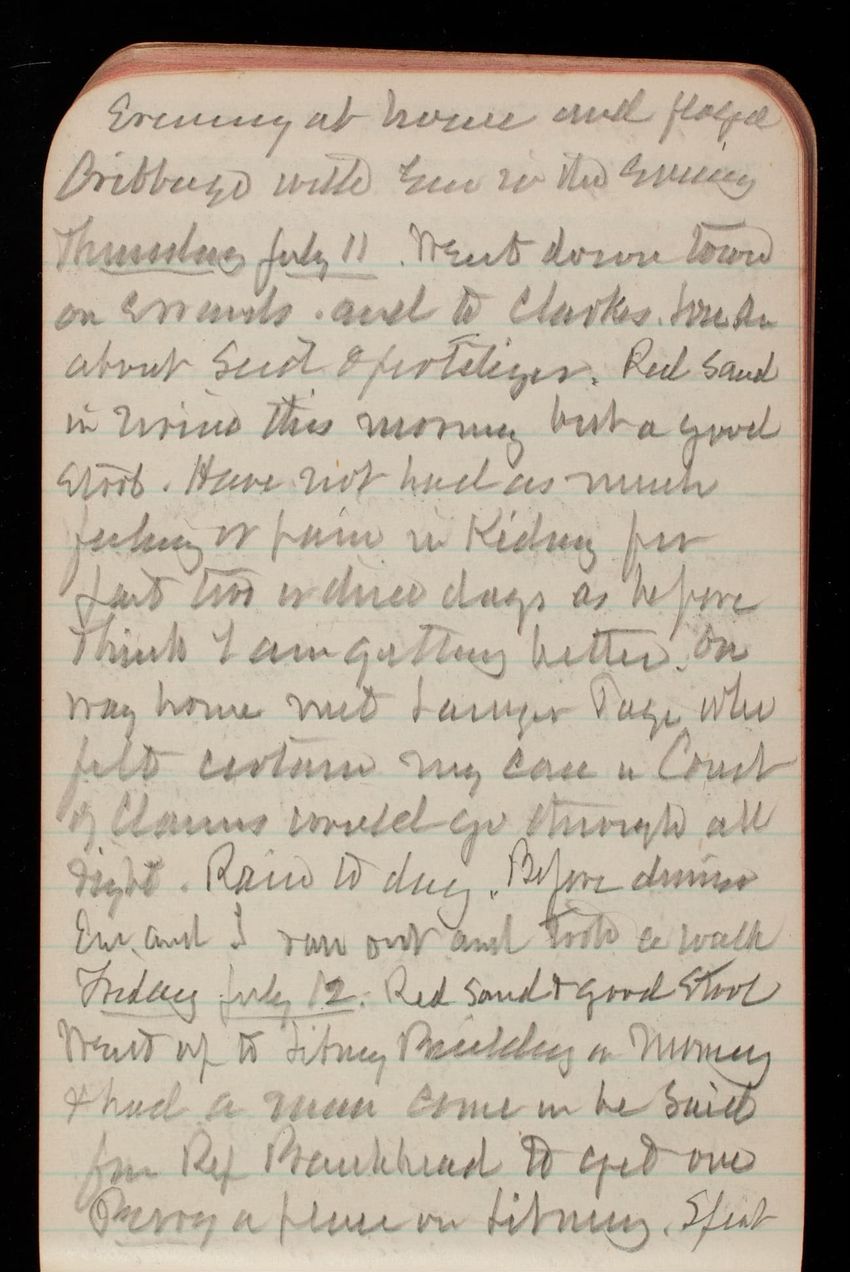 Evening at home and played
Cribbage with Em in the Evening
Thursday July 11. Went down town
on Errands. and to Clarkes.
about Seed & fertilizer. Red Sand
in Urine this morning but a good
Stool. Have not had as much
feeling or pain in Kidney for
past two or three days as before
Think I am getting better. On
way home met Lawyer Page who
felt certain my case in Court
of Claims would go through all
right. Rain to day. Before dinner
Em. and I ran out and took a walk
Friday July 12. Red Sand & good Stool
Went up to Library Building in Morning
& had a man come in he said
from Rep Bankhead to get one
Perry a place on Library. Spent